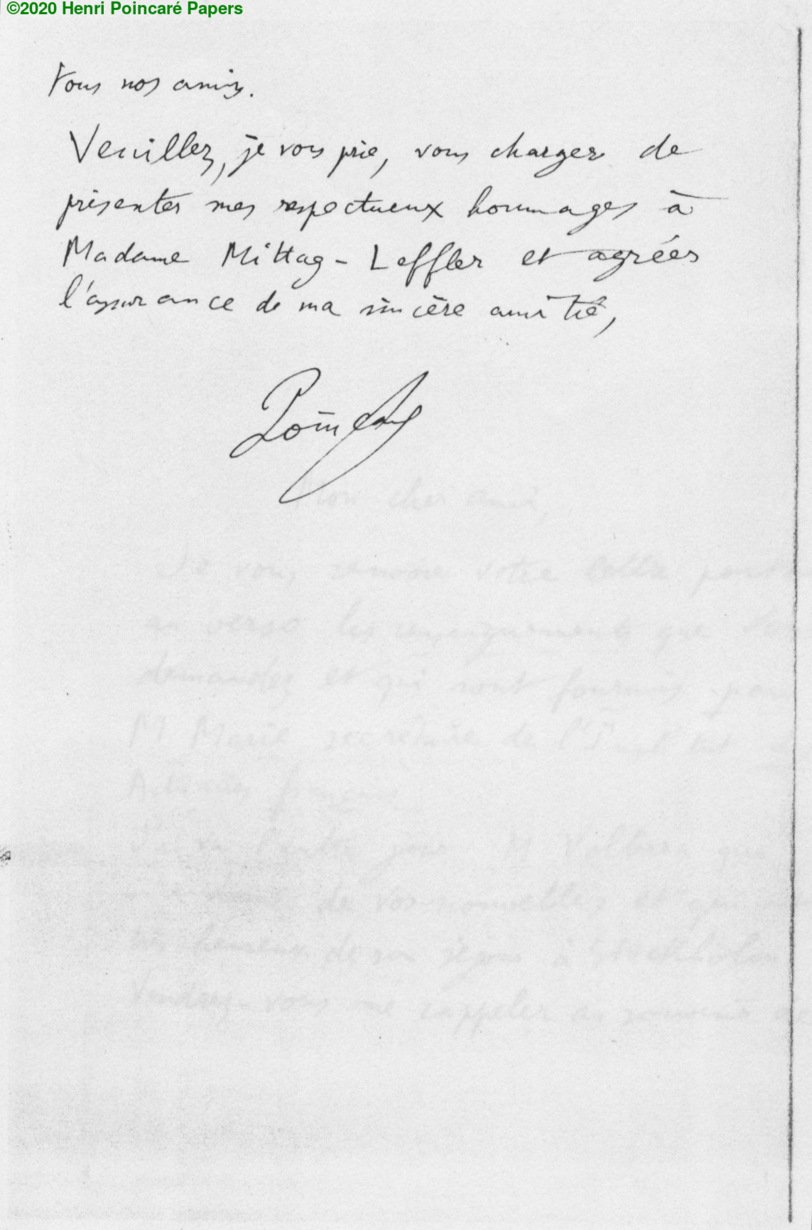 ©2020 Henri Poincaré Papers
tous nos amis.
Veuillez, je vous prie, vous charger de
présenter mes respectueux hommages à
Madame Mittag-Leffler et agréer
l'assurance de ma sincère amitié,
Poincaré
Mon cher ami,
Je vous renvoie votre lettre
au verso les renseignements que
demandez et qui sont fournis par
M Marie secrétaire de l'Institut
Actuaires français
J'ai vu l'autre jour M Volterra qui
de vos nouvelles et qui
très heureux de son séjour à Stockholm
Voudrez-vous me rappeler au souvenir de